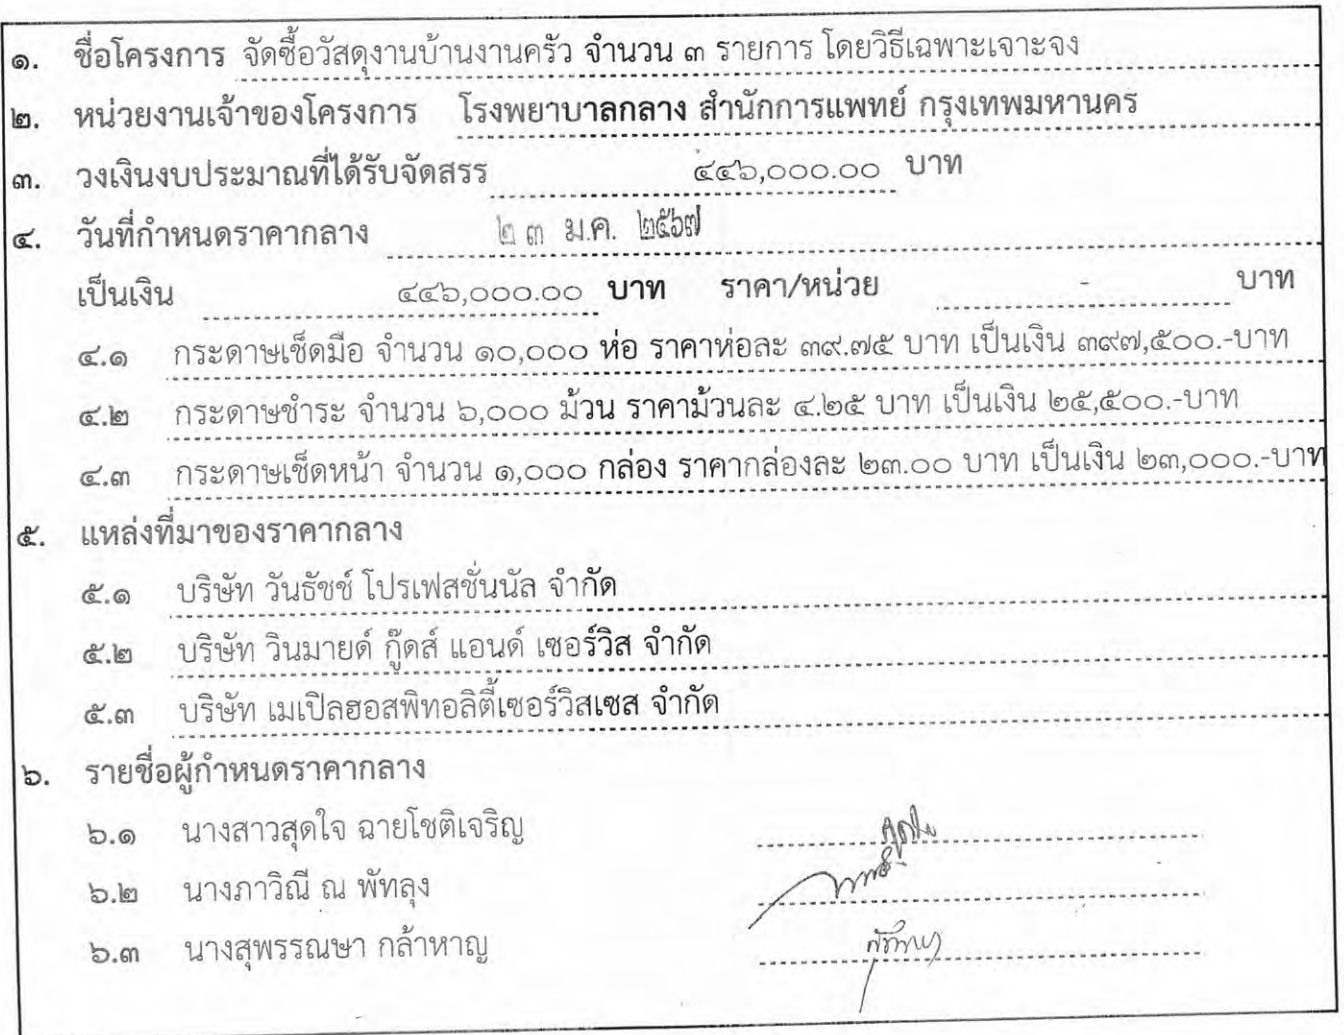 ๑. ชื่อโครงการ จัดซื้อวัสดุงานบ้านงานครัว จำนวน ๓ รายการ โดยวิธีเฉพาะเจาะจง
๒. หน่วยงานเจ้าของโครงการ โรงพยาบาลกลาง สำนักการแพทย์ กรุงเทพมหานคร
๓. วงเงินงบประมาณที่ได้รับจัดสรร ๔๔๖,๐๐๐.๐๐ บาท
๔. วันที่กำหนดราคากลาง ๒๓ ม.ค. ๒๕๖๗
เป็นเงิน ๔๔๖,๐๐๐.๐๐ บาท ราคา/หน่วย - บาท
๔.๑ กระดาษเช็ดมือ จำนวน ๑๐,๐๐๐ ห่อ ราคาห่อละ ๓๙.๗๕ บาท เป็นเงิน ๓๙๗,๕๐๐.-บาท
๔.๒ กระดาษชำระ จำนวน ๖,๐๐๐ ม้วน ราคาม้วนละ ๔.๒๕ บาท เป็นเงิน ๒๕,๕๐๐.-บาท
๔.๓ กระดาษเช็ดหน้า จำนวน ๑,๐๐๐ กล่อง ราคากล่องละ ๒๓.๐๐ บาท เป็นเงิน ๒๓,๐๐๐.-บาท
๕. แหล่งที่มาของราคากลาง
๕.๑ บริษัท วันธัชช์ โปรเฟสชั่นนัล จำกัด
๕.๒ บริษัท วินมายด์ กู๊ดส์ แอนด์ เซอร์วิส จำกัด
๕.๓ บริษัท เมเปิลฮอสพิทอลิตี้เซอร์วิสเซส จำกัด
๖. รายชื่อผู้กำหนดราคากลาง
๖.๑ นางสาวสุดใจ ฉายโชติเจริญ
๖.๒ นางภาวิณี ณ พัทลุง
๖.๓ นางสุพรรณษา กล้าหาญ